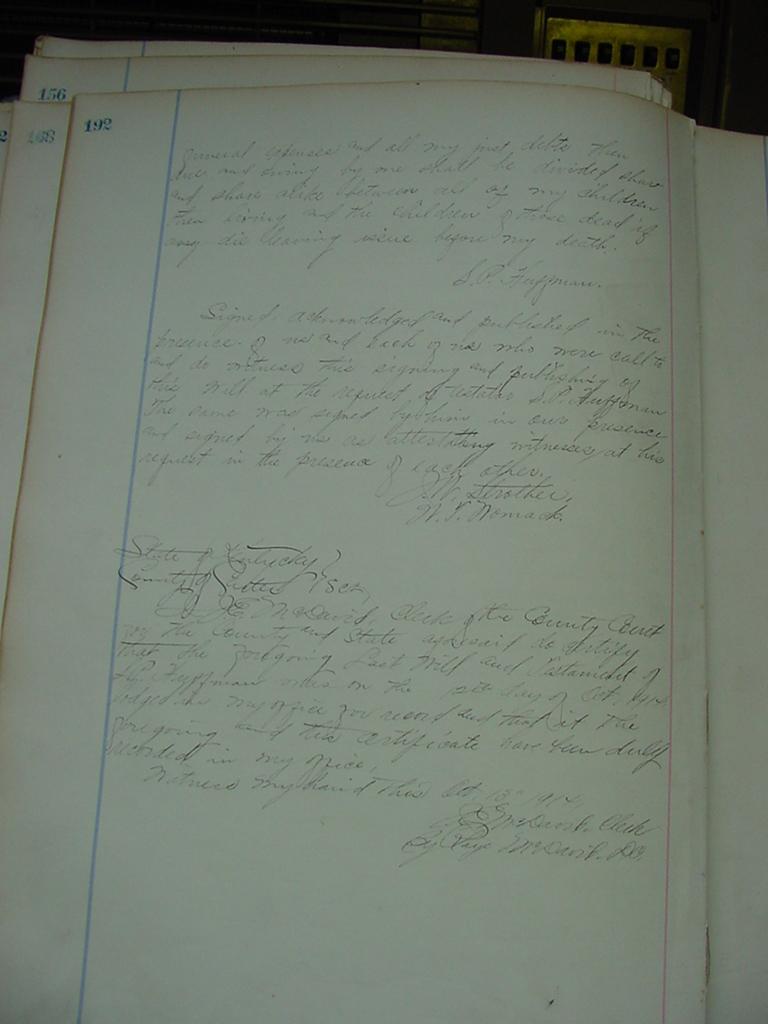 156
168
192
funeral expenses and all my just debts then
due and owing by me shall be divided share
and share alike between all of my children
then living and the children of those dead if
any die leaving issue before my death.
S.P. Huffman.
Signed, acknowledged and published in the
presence of us and each of us who were call to
and do witness this signing and publishing of
this Will at the request of testator S.P. Huffman
The same was signed by him in our presence
and signed by us as attestating witnesses at his
request in the presence of each other.
J.W. Strother,
W.T. Womack.
State of Kentucky
County of Carter Sct,
I J.E. McDavid, Clerk of the County Court
for the County and State aforesaid do certify
that the foregoing Last Will and Testament of
S.P. Huffman was on the 12th day of Oct, 1914
lodged in my office for record and that it the
foregoing and this certificate have been duly
recorded in my office,
Witness my hand this Oct 13" 1914,
J.E. McDavid, Clerk
By McDavid, D.C.